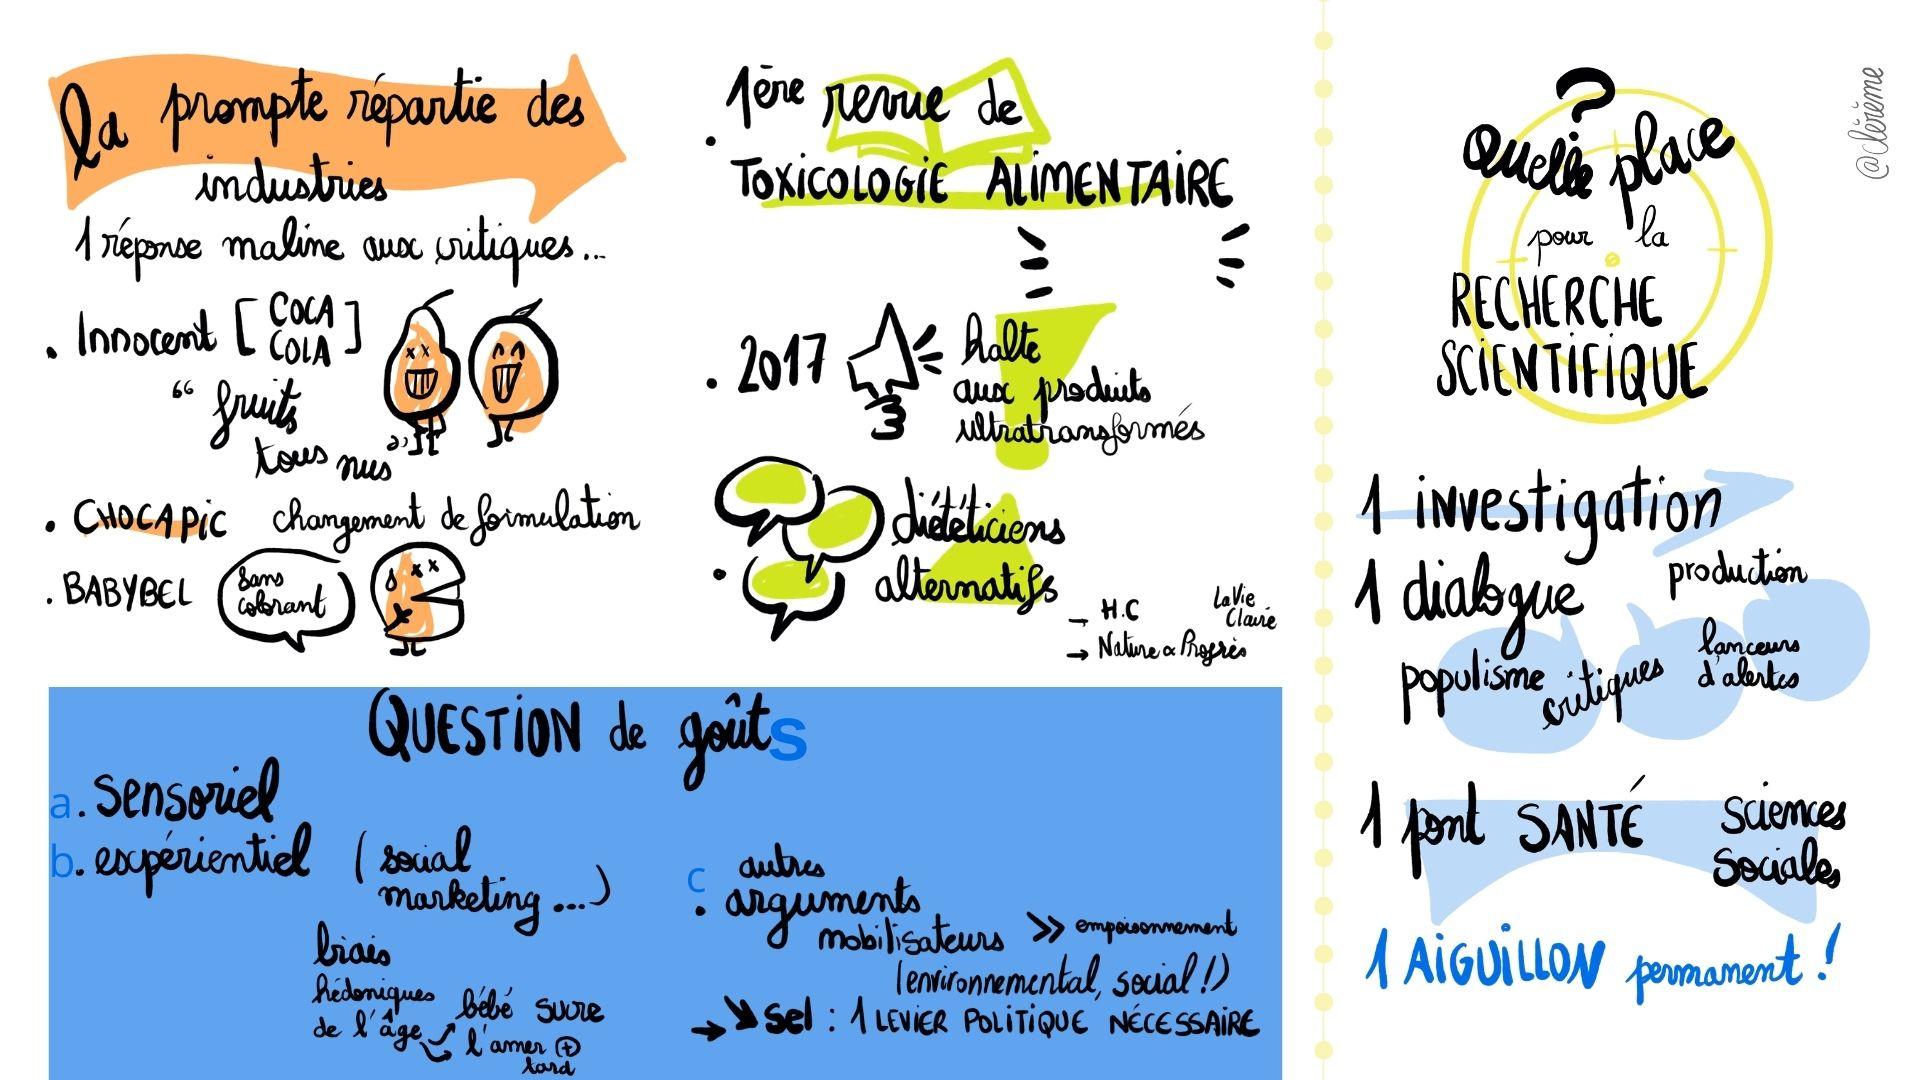 la prompte répartie des
industries
1 réponse maline aux critiques...
. Innocent [COCA
COLA]
"fruits
tous nus"
. CHOCAPIC changement de formulation
. BABYBEL
Sans
colorant
1ère revue de
. TOXICOLOGIE ALIMENTAIRE
. 2017
halte
aux produits
ultratransformés
. diététiciens
alternatifs
→ H.C
La Vie
Claire
→ Nature & Progrès
QUESTION de goûts
a. sensoriel
b. expérientiel (social
marketing...)
biais
hédoniques
de l'âge
bébé sucre
l'amer ⊕
tard
c. autres
arguments
mobilisateurs >> empoisonnement
(environnemental, social !)
→ ↘ sel : 1 LEVIER POLITIQUE NÉCESSAIRE
?
Quelle place
pour la
RECHERCHE
SCIENTIFIQUE
1 investigation
1 dialogue
production
populisme
critiques
lanceurs
d'alertes
1 pont SANTÉ Sciences
Sociales
1 AIGUILLON permanent !
@clérème